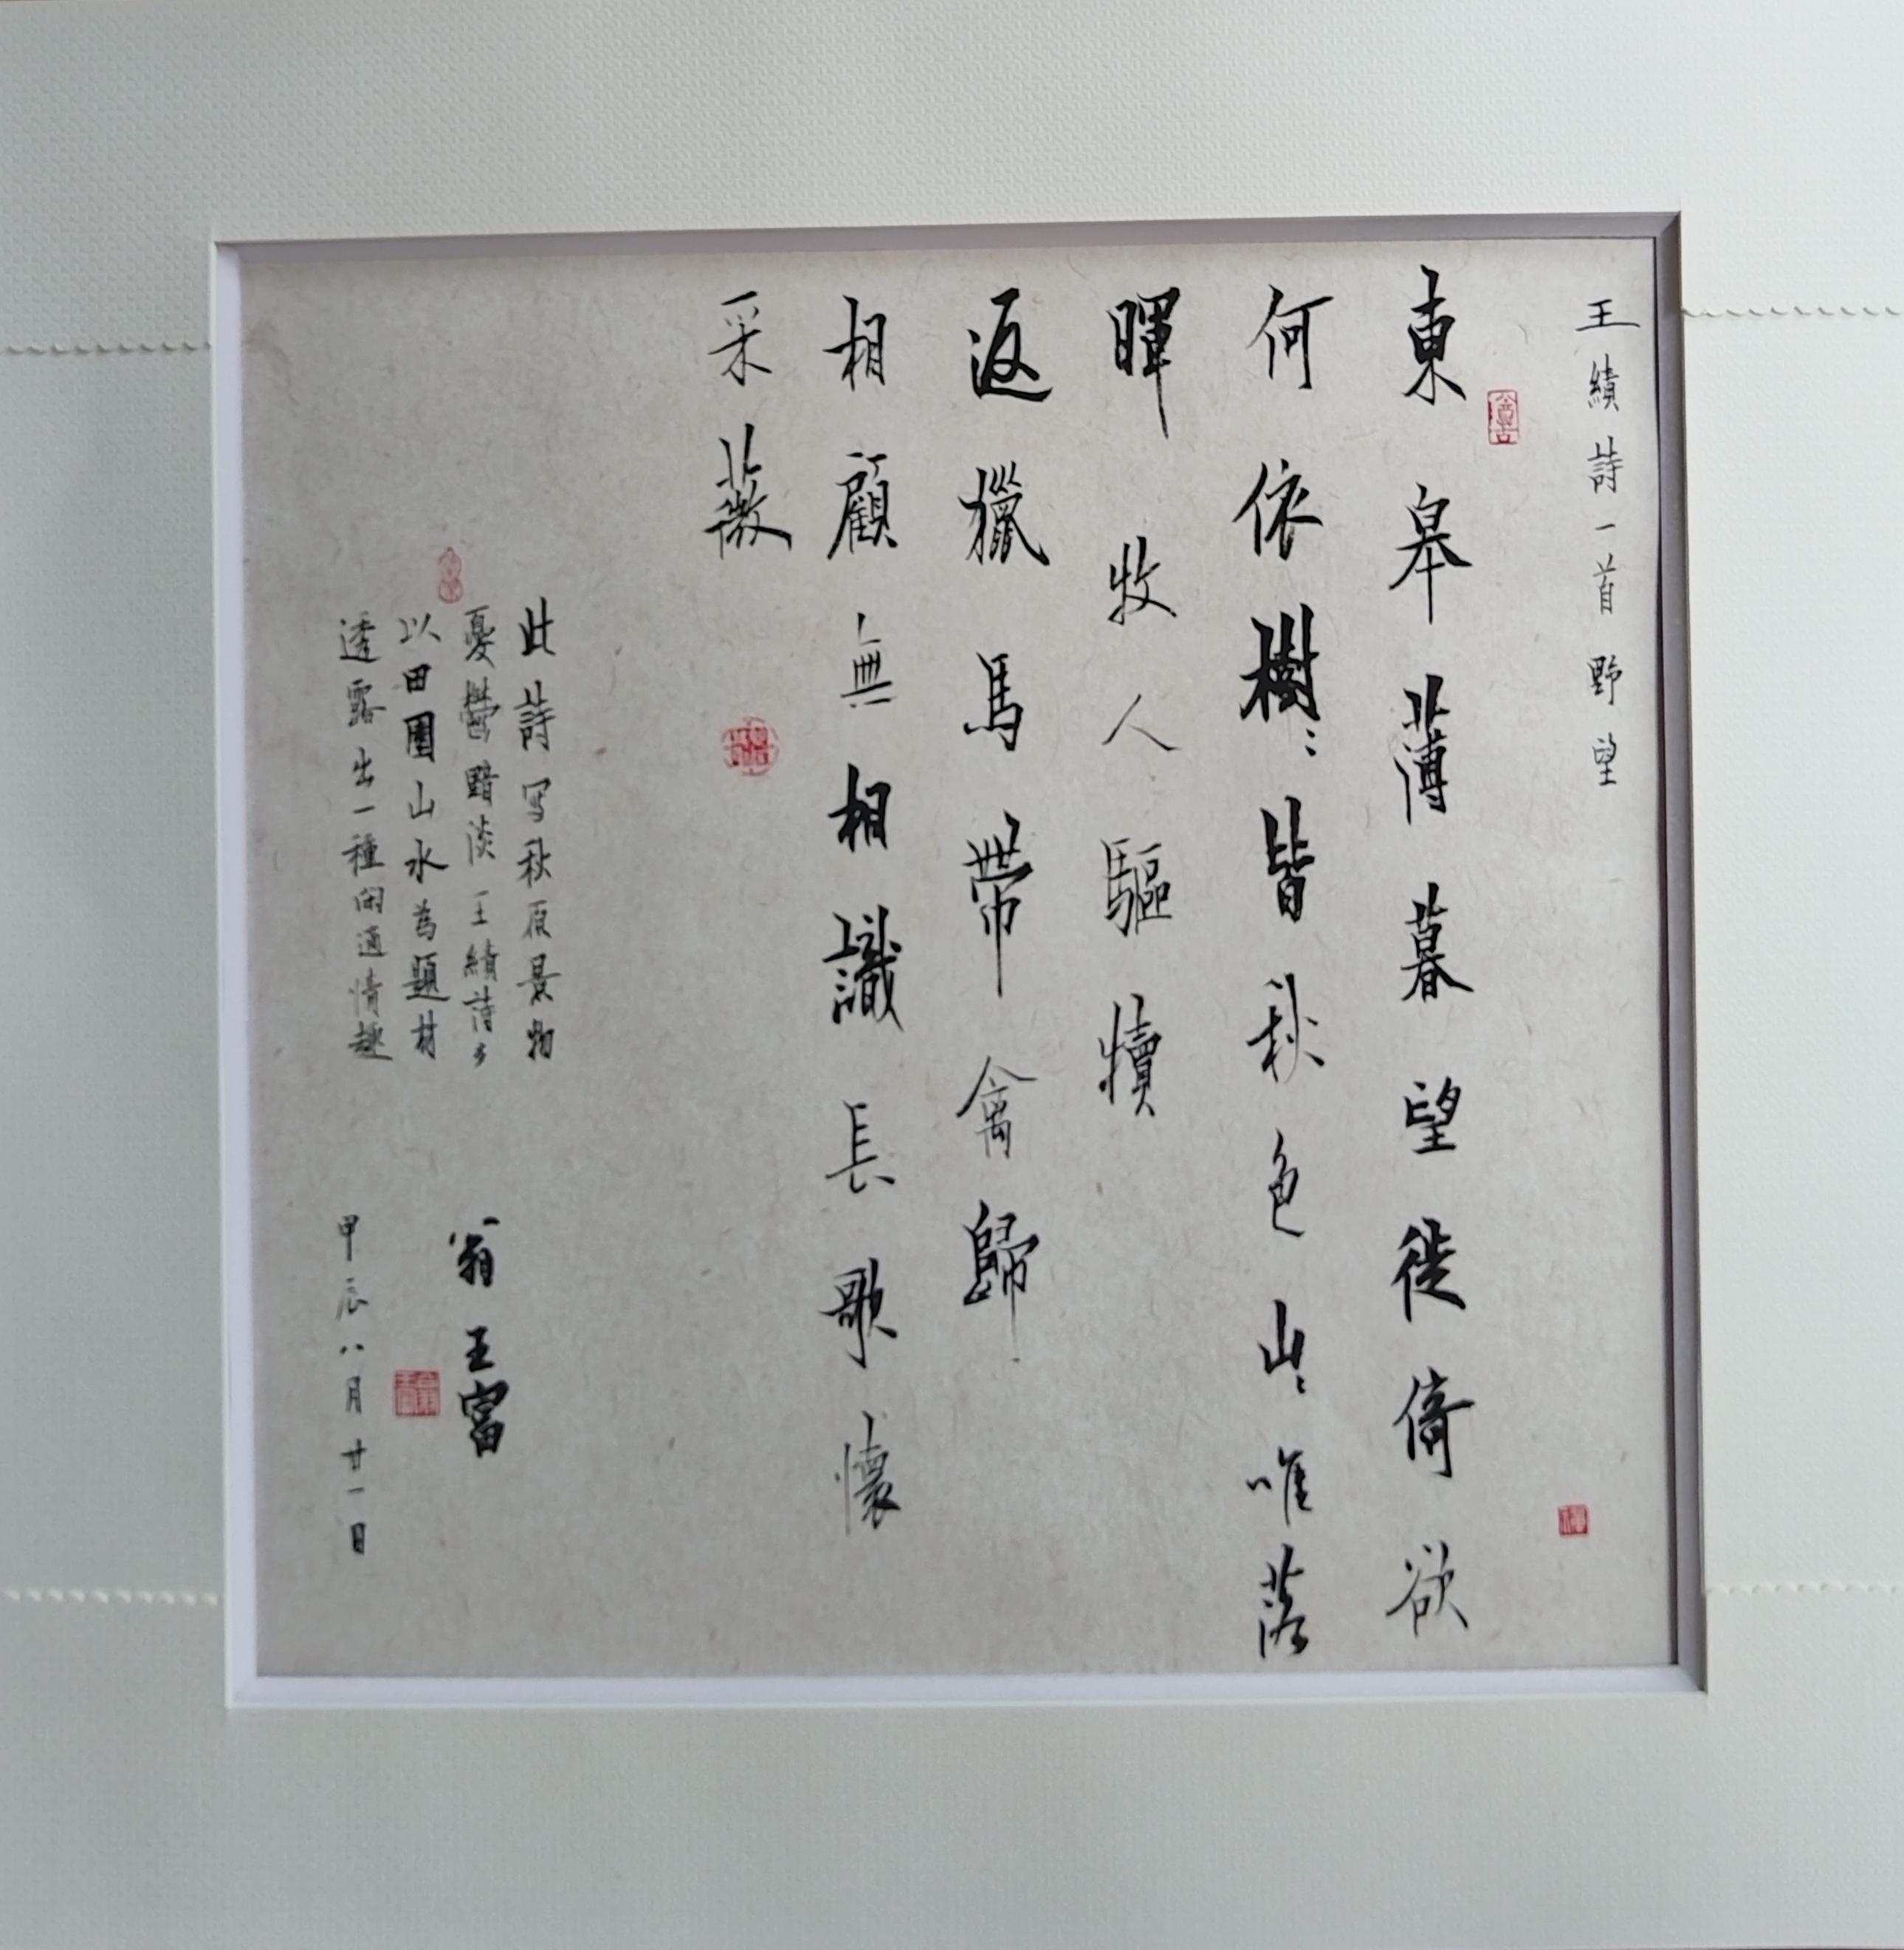 王績詩一首 野望
東皋薄暮望徙倚欲
何依樹〻皆秋色山〻唯落
暉 牧人驅犢
返獵馬帶禽歸
相顧無相識長歌懷
采薇
此詩写秋原景物
憂鬱黯淡 王績詩多
以田園山水為題材
透露出一種闲適情趣
翁王富
甲辰八月廿一日